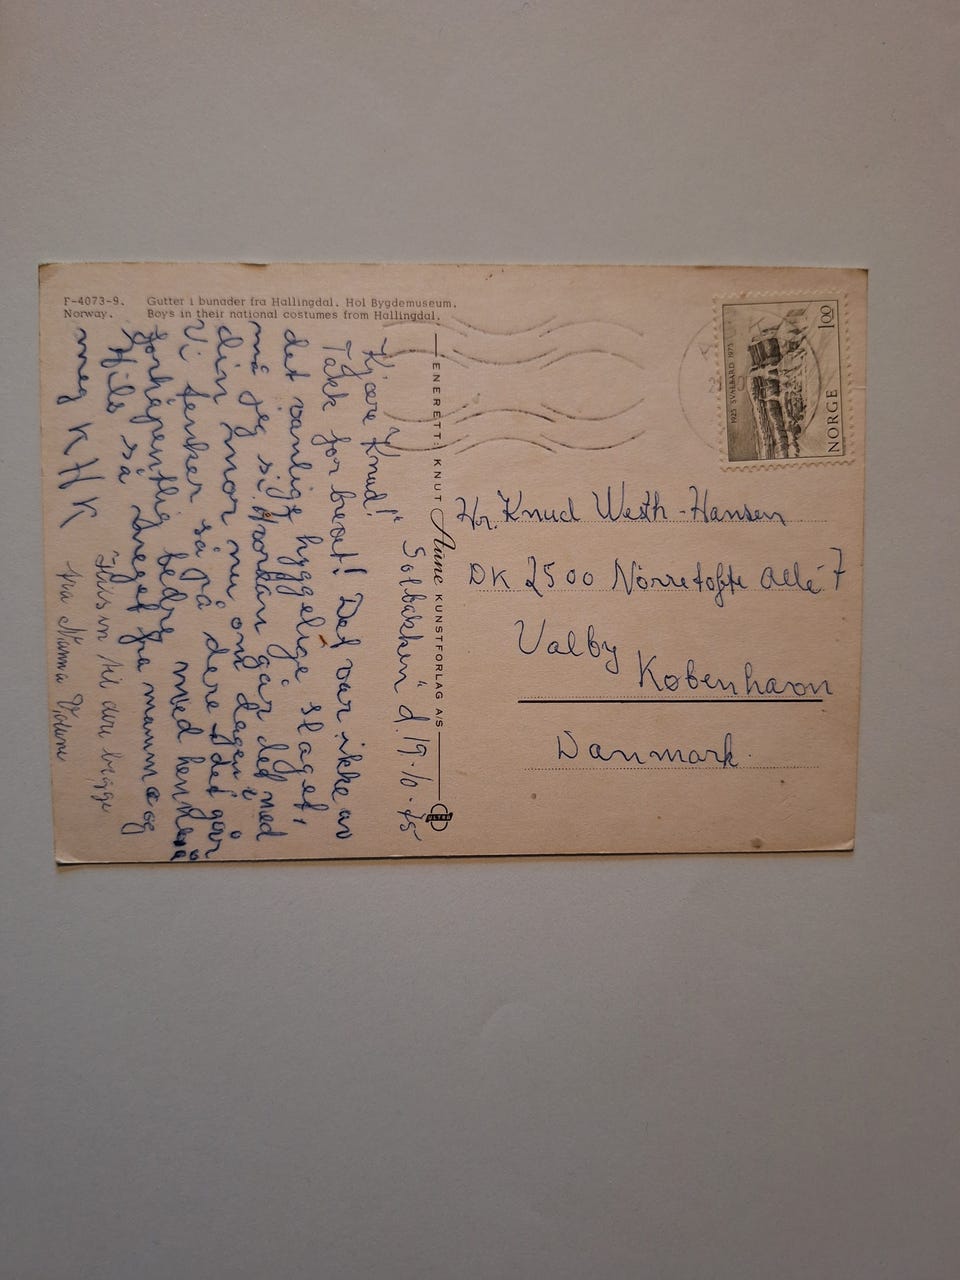 F-4073-9. Gutter i bunader fra Hallingdal. Hol Bygdemuseum.
Norway. Boys in their national costumes from Hallingdal.
"Solbakken" d. 19-10-75
Kjære Knud!
Takk for brevet! Det var ikke av
det vanlige hyggelige slaget,
må jeg si. Hvordan går det med
din mor nu om dagen?
Vi tenker så på dere, det går
forhåpentlig bedre med henne
Hils så meget fra mamma og
meg KHK
Hilsen til dere begge
fra Nanna
ENERETT: KNUT Aune KUNSTFORLAG A/S
ULTRA
1925 SVALBARD 1975
NORGE 100
Hr. Knud Weith-Hansen
DK 2500 Nörretofte Allé 7
Valby
København
Danmark.